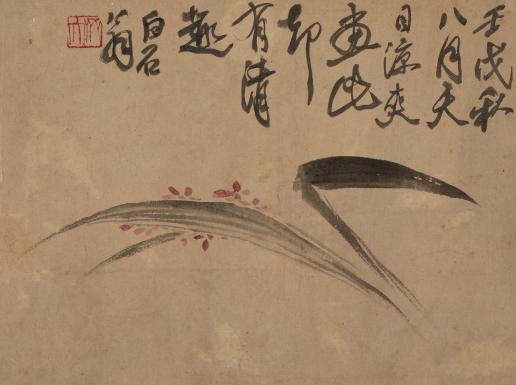 壬戌秋
八月天
日涼爽
畫此
却
有清
趣
白石
翁